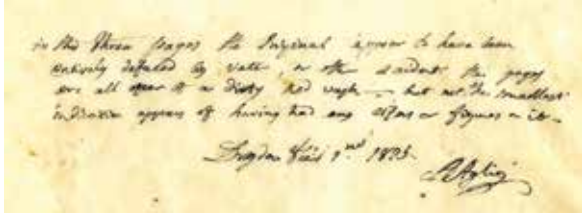 in this three pages the Original appear to have been
entirely defaced by water, or other accident the pages
are all over of a dirty red wash — but not the smallest
indication appears of having had any letters or figures on it —
Dresden 1825.
A Aglio